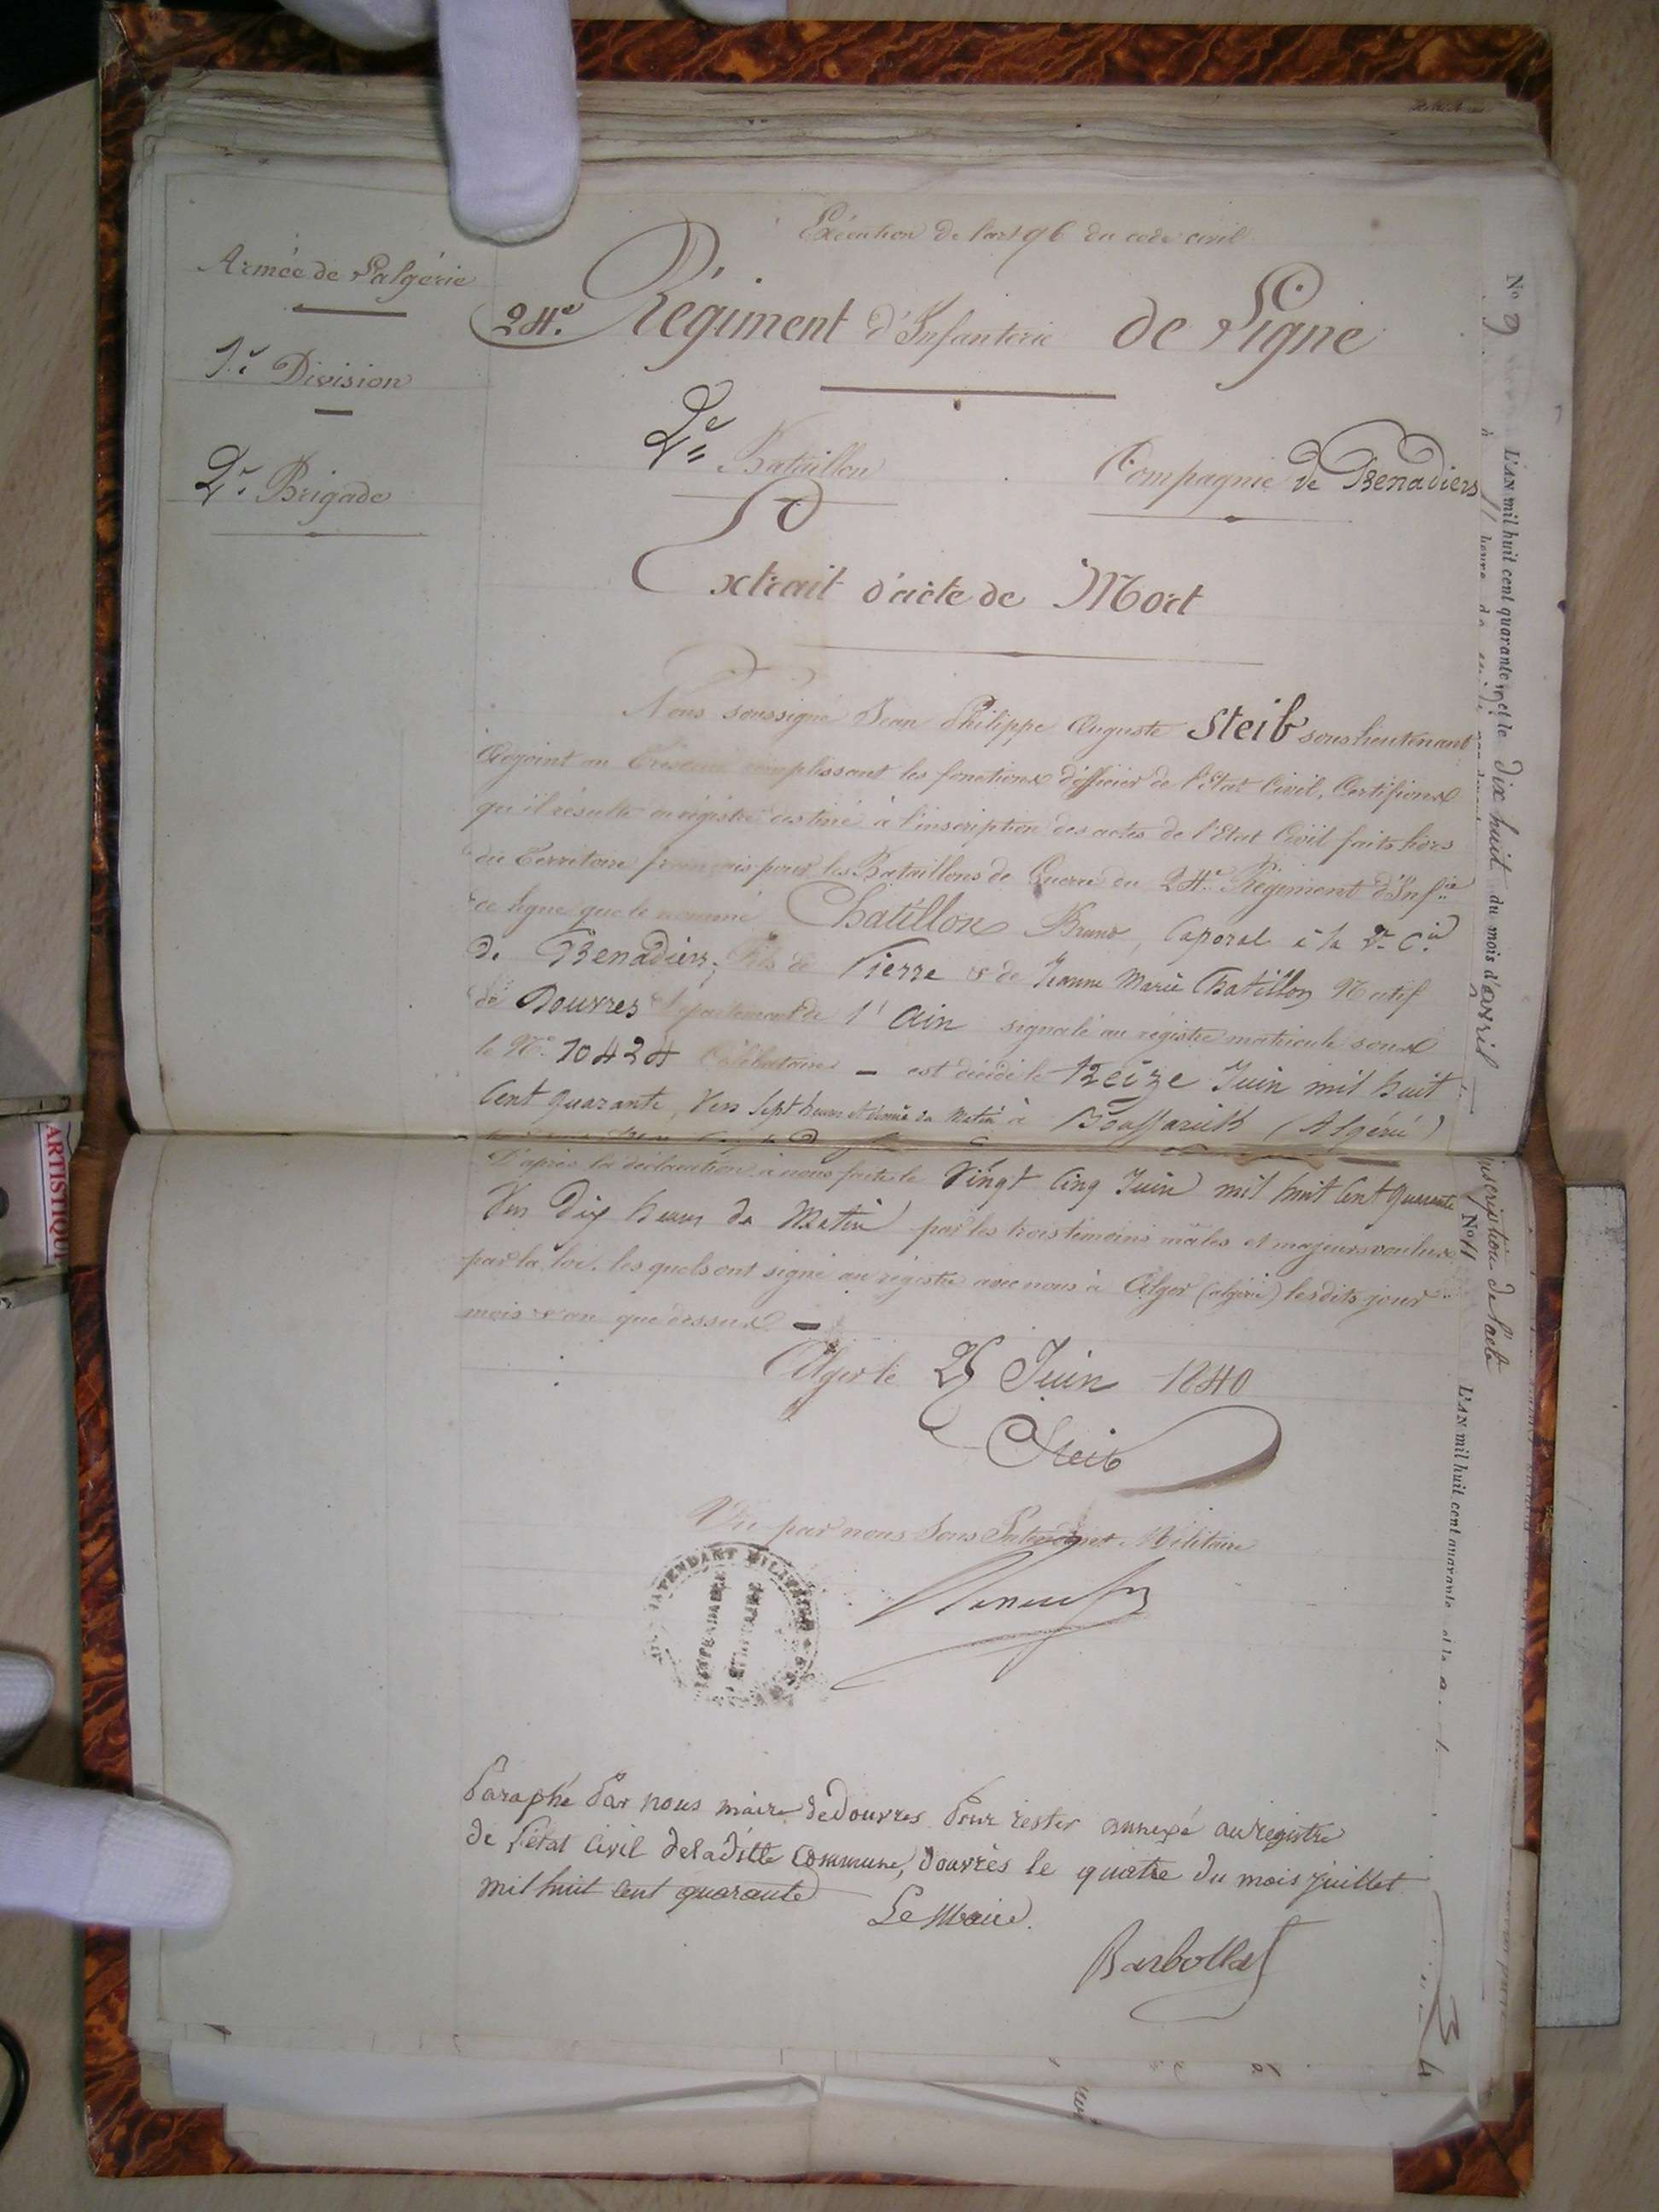 Exécution de l'art 96 du code civil
Armée de l'algérie
24e. Régiment d'Infanterie de Ligne
1re Division
2e Bataillon Compagnie de Grenadiers
2e Brigade
Extrait d'acte de Mort
Nous soussigné Jean Philippe Auguste Steib sous lieutenant
adjoint au Trésorier remplissant les fonctions d'officier de l'Etat Civil, Certifions
qu'il résulte au régistre destiné à l'inscription des actes de l'Etat Civil faits hors
du Territoire français pour les Bataillons de Guerre du 24e. Régiment d'Infie
de ligne que le nommé Chatillon Bruno, Caporal à la 2e Cie
de Grenadiers, fils de Pierre & de Jeanne Marie Chatillon Natif
de Douvres Département de l'Ain signalé au régistre matricule sous
le No. 10424 Célibataire — est décédé le treize Juin mil huit
Cent quarante, Vers Sept heures et demie du Matin à Bouffarick (Algérie)
D'après la déclaration à nous faite le Vingt Cinq Juin mil huit Cent Quarante
Vers Dix heures du Matin par les trois témoins mâles et majeurs voulus
par la loi, les quels ont signé au régistre avec nous à Alger (algérie) les dits jour
mois & an que dessus —
Alger le 25 Juin 1840
Steib
Vu par nous Sous Intendant Militaire
INTENDANT MILITAIRE
Paraphé Par nous maire de Douvres Pour rester annexé au régistre
de l'état Civil de la ditte Commune, Douvres le quatre du mois juillet
mil huit cent quarante
Le Maire
Barbollat
No 9
L'AN mil huit cent quarante et le dix huit du mois d'avril
inscription de l'acte
No 11
L'AN mil huit cent quarante et le
ARTISTIQU